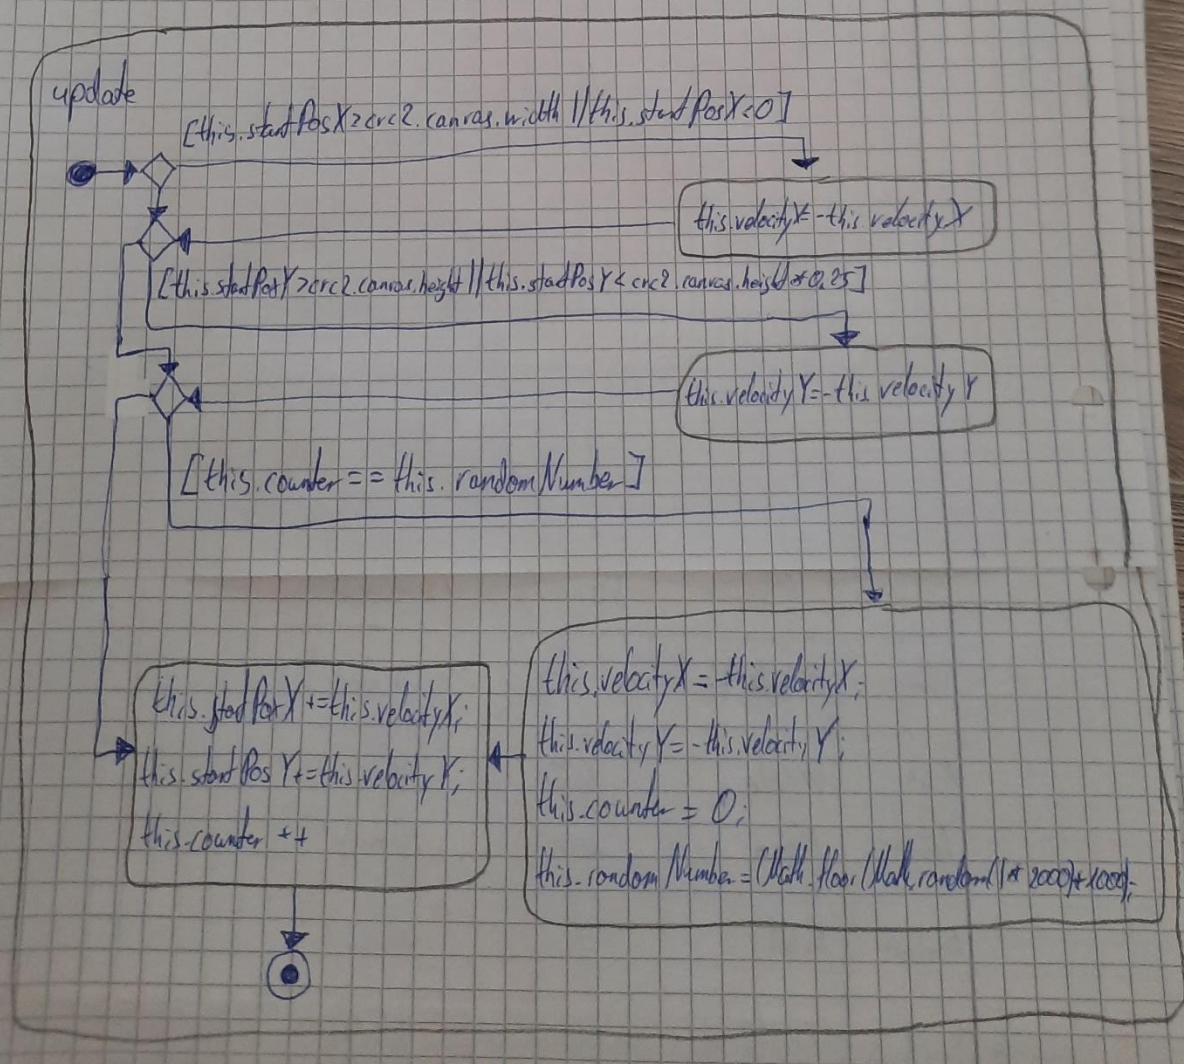 update
[this.startPosX>crc2.canvas.width || this.startPosX<0]
this.velocityX=-this.velocityX
[this.startPosY>crc2.canvas.height || this.startPosY < crc2.canvas.height*0,25]
this.velocityY=-this.velocityY
[this.counter == this.randomNumber]
this.startPosX+=this.velocityX;
this.startPosY+=this.velocityY;
this.counter ++
this.velocityX = -this.velocityX;
this.velocityY=-this.velocityY;
this.counter = 0;
this.randomNumber=(Math.floor(Math.random()*2000)+1000);